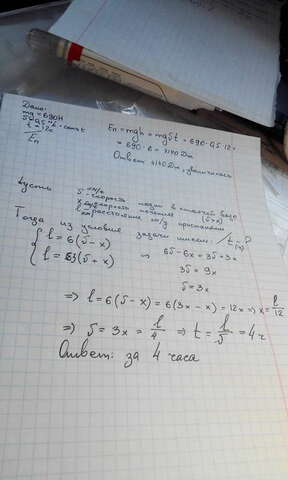 Дано:
mg = 690 Н
υ = 0,5 м/с = const
t = 12 с
Eп
Eп = mgh = mgυt = 690 · 0,5 · 12 =
= 690 · 6 = 4140 Дж
Ответ 4140 Дж, увеличилась
Пусть υ км/ч - скорость лодки в стоячей воде
x км/ч скорость течения (υ>x)
l км расстояние м/у пристанями
Тогда из условия задачи имеем: t - ?
l = 6(υ - x)
l = 3(υ + x) ⇒ 6υ - 6x = 3υ + 3x
3υ = 9x
υ = 3x
⇒ l = 6(υ - x) = 6(3x - x) = 12x ⇒ x = l/12
⇒ υ = 3x = l/4 ⇒ t = l/υ = 4 ч
Ответ: за 4 часа